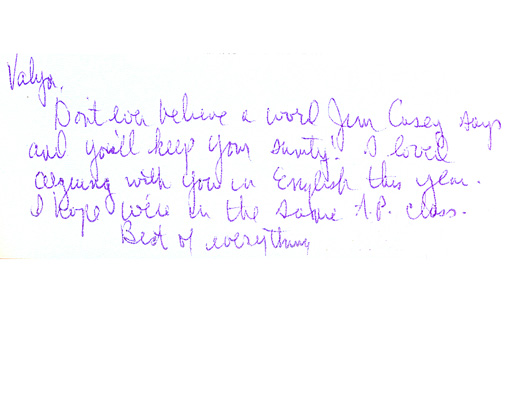 Valya,
Don't ever believe a word Jim Casey says
and you'll keep your sanity! I loved
arguing with you in English this year.
I hope we're in the same A.P. class.
Best of everything